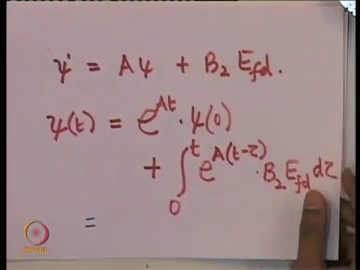 ψ̇ = Aψ + B₂ E_fd.
ψ(t) = e^{At} · ψ(0)
+ ∫₀ᵗ e^{A(t-τ)} · B₂ E_fd dτ
=
NPTEL